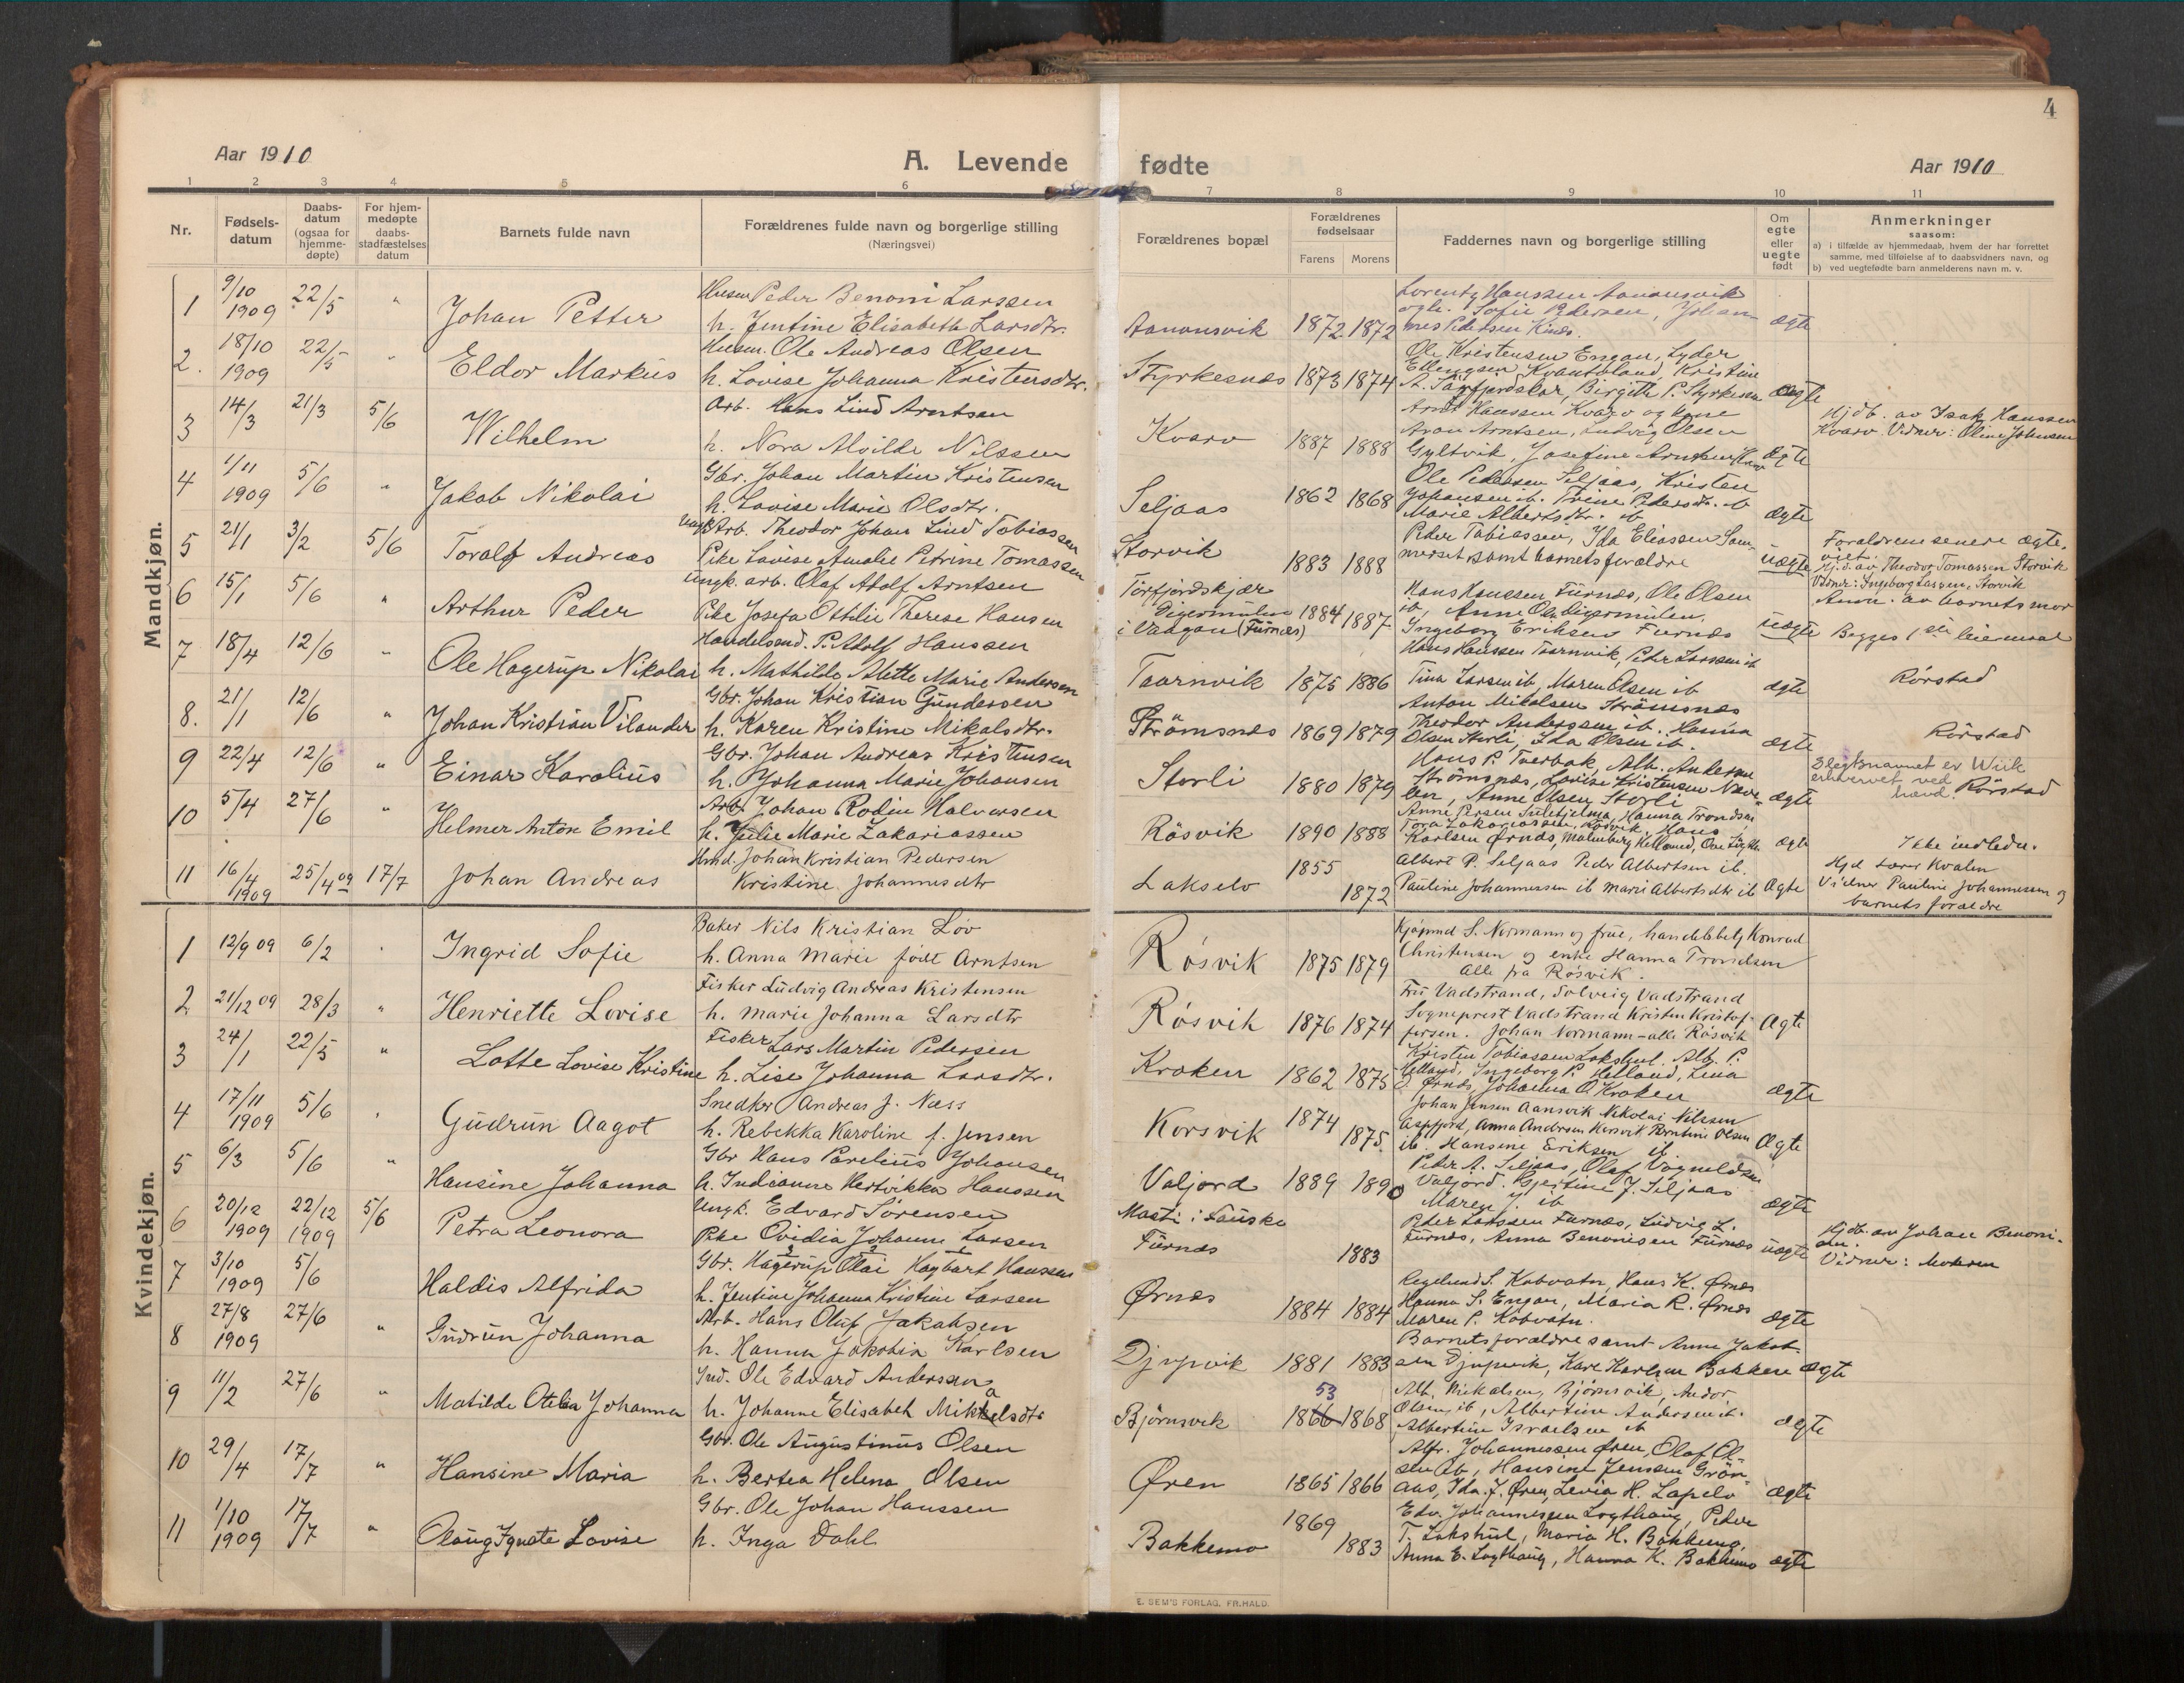 4
Aar 1910
A. Levende
fødte
Aar 1910
1 2 3 4 5 6 7 8 9 10 11
Nr.
Fødsels-
datum
Daabs-
datum
(ogsaa for
hjemme-
døpte)
For hjem-
medøpte
daabs-
stadfæstelses
datum
Barnets fulde navn
Forældrenes fulde navn og borgerlige stilling
(Næringsvei)
Forældrenes bopæl
Forældrenes
fødselsaar
Farens Morens
Faddernes navn og borgerlige stilling
Om
egte
eller
uegte
født
Anmerkninger
saasom:
a) i tilfælde av hjemmedaab, hvem der har forrettet
samme, med tilføielse af to daabsvidners navn, og
b) ved uegtefødte barn anmelderens navn m. v.
Mandkjøn.
1 9/10 1909 22/5 " Johan Petter
Husm Peder Benoni Larssen
h. Jentine Elisabeth Larsdtr.
Aanonsvik 1872 1872
Lorentz Hanssen Aanonsvik
ogh. Sofie Pedersen, Johan-
nes Pedersen Kines.
ægte
2. 18/10 1909 22/5 " Eldor Markus
Husm. Ole Andreas Olsen
h. Lovise Johanna Kristensdtr.
Styrkesnes 1873 1874
Ole Kristensen Engan, Lyder
Ellingsen Kvantoland, Kristine
A. Tørfjordskar, Birgith P. Styrkesn
ægte
3 14/3 21/3 5/6 Wilhelm
Arb. Hans Lind Arntsen
h. Nora Alvilde Nilssen
Kvarv 1887 1888
Arnt Hanssen Kvarv og kone
Aron Arntsen, Ludvig Olsen
Gyltvik, Josefine Arntsen Kvarv
ægte
Hjdb. av Isak Hanssen
Kvarv. Vidner: Oline Johnsen
4 1/11 1909 5/6 " Jakob Nikolai
Gbr. Johan Martin Kristensen
h. Lovise Marie Olsdtr.
Seljaas 1862 1868
Ole Pedersen Seljaas, Kristen
Johansen ib. Trine Pedersdtr. ib
Marie Albertsdtr. ib
ægte
5 21/1 3/2 5/6 Toralf Andreas
Ungk Arb. Theodor Johan Lind Tobiassen
Pike Lovise Amalie Petrine Tomassen
Storvik 1883 1888
Peder Tobiassen, Ida Eliassen Som-
merset samt barnets forældre
uægte
Foraldrene senere ægte-
viet.
Hj.d. av Theodor Tomassen Storvik
Vidner: Ingeborg Lassen, Storvik
6 15/1 5/6 " Arthur Peder
Ungk. arb. Olaf Adolf Arntsen
Pike Josefa Othilie Therese Hansen
Tørfjordskjær
Digermulen
i Vaagan (Furnes) 1884 1887
Hans Hanssen Furnes, Ole Olsen
ib, Anne Ols. Digermulen,
Ingeborg Eriksen Furnes
uægte
Anm. av barnets mor
Begges 1ste leiermaal
7 18/4 12/6 " Ole Hagerup Nikolai
Handelsmd. P. Adolf Hanssen
h. Mathilde Alette Marie Andersen
Taarnvik 1875 1886
Hans Hanssen Taarnvik, Peder Larssen ib
Tina Larsen ib Maren Olsen ib
ægte
Rørstad
8. 21/1 12/6 " Johan Kristian Vilander
Gbr. Johan Kristian Gundersen
h. Karen Kristine Mikalsdtr.
Strømsnes 1869 1879
Anton Mikalsen Strømsnes
Theodor Anderssen ib. Hanna
Olsen Storli, Ida Olsen ib.
ægte
Rørstad
9 22/4 12/6 " Einar Karolius
Gbr. Johan Andreas Kristensen
h. Johanna Marie Johansen
Storli 1880 1879
Hans P. Tverbak, Alb. Andersen
Strømsnes, Lovise Kristensen
Anne Olsen Storli
ægte
Slegtsnavnet er Wiik
erhvervet ved
hævd.
Rørstad
10 5/4 27/6 " Helmer Anton Emil
Arb. Johan Rodin Halvorsen
h. Julie Marie Zakariassen
Røsvik 1890 1888
Anne Jensen Sulitjelma, Hanna Trondsen
Tora Zakariassen, Røsvik, Hans
Karlsen Ørnes, Malmberg Helland,
ægte
Ikke indledn.
11 16/4 1909 25/4 09 17/7 Johan Andreas
Hmd. Johan Kristian Pedersen
Kristine Johannesdtr
Lakselv 1855 1872
Albert P. Seljaas Peder Albertsen ib.
Pauline Johannessen ib Marie Albertsdtr ib
Ægte
Hjd Kvalen
Vidner Pauline Johannessen og
barnets foraldre
Kvindekjøn.
1 12/9 09 6/2 " Ingrid Sofie
Baker Nils Kristian Løv
h. Anna Marie født Arntsen
Røsvik 1875 1879
Kjøpmd S. Normann og frue, handelsbetj Konrad
Christensen og enke Hanna Trondsen
Alle fra Røsvik.
2 21/12 09 28/3 " Henriette Lovise
Fisker Ludvig Andreas Kristensen
h. Marie Johanna Larsdtr
Røsvik 1876 1874
Fru Vadstrand, Solveig Vadstrand
Sogneprest Vadstrand Kristen Kristof-
fersen. Johan Normann - alle Røsvik
Ægte
3 24/1 22/5 " Lotte Lovise Kristine
Fisker Lars Martin Pedersen
h. Lise Johanna Larsdtr.
Kroken 1862 1875
Kristen Tobiassen Lakshul, Alb. P.
Helland, Ingeborg P. Helland, Lina
J. Ørnes, Johanna O Kroken
ægte
4 17/11 1909 5/6 " Gudrun Aagot
Snedker Andreas J. Næss
h. Rebekka Karoline f. Jensen
Korsvik 1874 1875.
Johan Jensen Aansvik Nikolai Nilssen
Aspfjord, Anna Andersen Korsvik Berntine Olsen
ib. Hansine Eriksen ib
Ægte
5 6/3 5/6 " Hansine Johanna
Gbr Hans Parelius Johansen
h. Indianne Hertvikka Hanssen
Valjord 1889 1890
Peder A. Seljaas, Olaf Vognildsen
Valjord. Bjertine J. Seljaas
Maren J. ib
ægte
6 20/12 1909 22/12 1909 5/6 Petra Leonora
Ungk. Edvard Sørensen
Pike Ovidia Johanne Larsen
Maati i Fauske
Furnes 1883
Peder Larssen Furnes, Ludvig L.
Furnes, Anna Benonisen Furnes
uægte
Hjdb. av Johan Benoni-
sen.
Vidner: Moderen
7 3/10 1909 5/6 Haldis Alfrida
Gbr. Hagerup Olai Hagbart Hanssen
h. Jentine Johanna Kristine Larsen
Ørnes 1884 1884
Regelund S. Kobvatn, Hans K. Ørnes
Hanna S. Engan, Maria R. Ørnes
Maren P. Kobvatn.
ægte
8 27/8 1909 27/6 " Gudrun Johanna
Arb. Hans Oluf Jakobsen
h. Hanna Jakobia Karlsen
Djupvik 1881 1883
Barnets forældre samt Anne Jakob-
sen Djupvik, Karl Karlsen Bakken
ægte
9 11/2 27/6 " Matilde Otelia Johanna
Ind. Ole Edvard Andersen
h. Johanne Elisabeth Mikkelsdtr
Bjørnsvik 1866 53 1868
Alb. Mikalsen, Bjørnsvik, Andor
Olsen, ib, Albertine Andersen ib.
Albertine Israelsen ib
ægte
10 29/4 17/7 " Hansine Maria
Gbr. Ole Augustinus Olsen
h. Bertea Helena Olsen
Øren 1865 1866
Alfr. Johannessen Øren, Olaf Ol-
sen ib, Hansine Jenssen Grøn-
aas, Ida J. Øren, Levia H. Lapelv
ægte
11 1/10 1909 17/7 " Olaug Ignate Lovise
Gbr. Ole Johan Hanssen
h. Inga Dahl
Bakkemo 1869 1883
Edv. Johannessen Løgthaug, Peder
T. Lakshul, Maria H. Bakkemo,
Anna E. Løgthaug, Hanna K. Bakkemo
ægte
E. SEM'S FORLAG, FR.HALD.